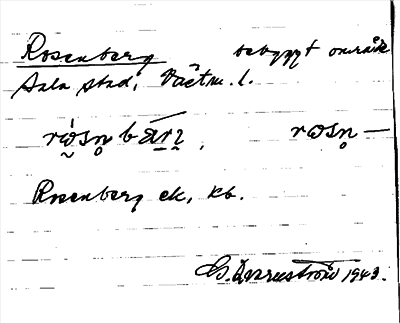 Rosenberg bebyggt område
Sala stad, Västm. l.
rὼsn̥bärj, rωsn̥—
Rosenberg ek, kb.
1943.